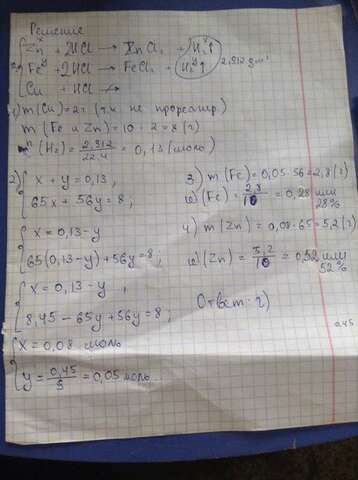 Решение
Zn + 2HCl → ZnCl₂ + H₂↑
Fe + 2HCl → FeCl₂ + H₂↑ 2,912 дм³
Cu + HCl ↛
1) m(Cu) = 2г (т.к. не прореагир)
m(Fe и Zn) = 10 - 2 = 8 (г)
(H₂) = 2,912/22,4 = 0,13 (моль)
2) { x + y = 0,13 ,
65x + 56y = 8 ;
{ x = 0,13 - y
65(0,13-y) + 56y = 8 ;
{ x = 0,13 - y ,
8,45 - 65y + 56y = 8 ;
{ x = 0,08 моль
y = 0,45/9 = 0,05 моль
3) m(Fe) = 0,05·56 = 2,8 (г)
ω(Fe) = 2,8/10 = 0,28 или
28%
4) m(Zn) = 0,08·65 = 5,2 (г)
ω(Zn) = 5,2/10 = 0,52 или
52%
Ответ: г)
0,45